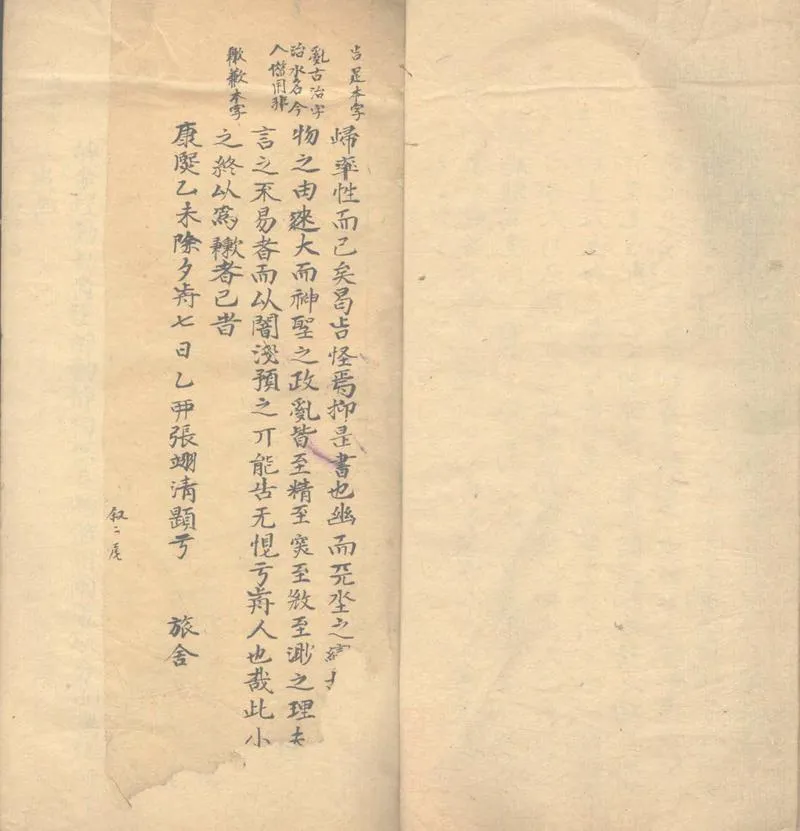 㫖足本字
亂古治字
治水名今
人借用非
歉本字
歸率性而已矣曷㫖怪焉抑是書也幽而天坔之
物之由迷大而神聖之政亂皆至精至突至微至渺之理夫
言之不易者而以闇淺預之丌能㫖无愳亏前人也哉此小
之終以為者已昔
康熙乙未除夕前七日乙丣張翊清顯亏 旅舍
叙二尾